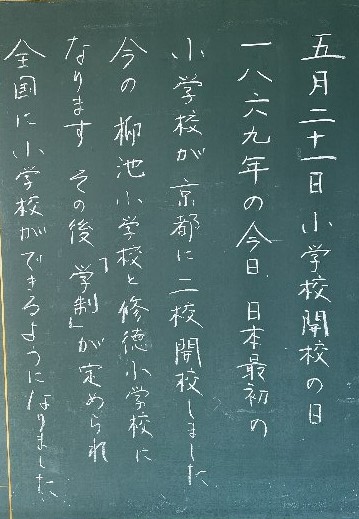 五月二十一日 小学校開校の日
一八六九年の今日、日本最初の
小学校が京都に二校開校しました
今の 柳池小学校と修徳小学校に
なります その後「学制」が定められ
全国に小学校ができるようになりました